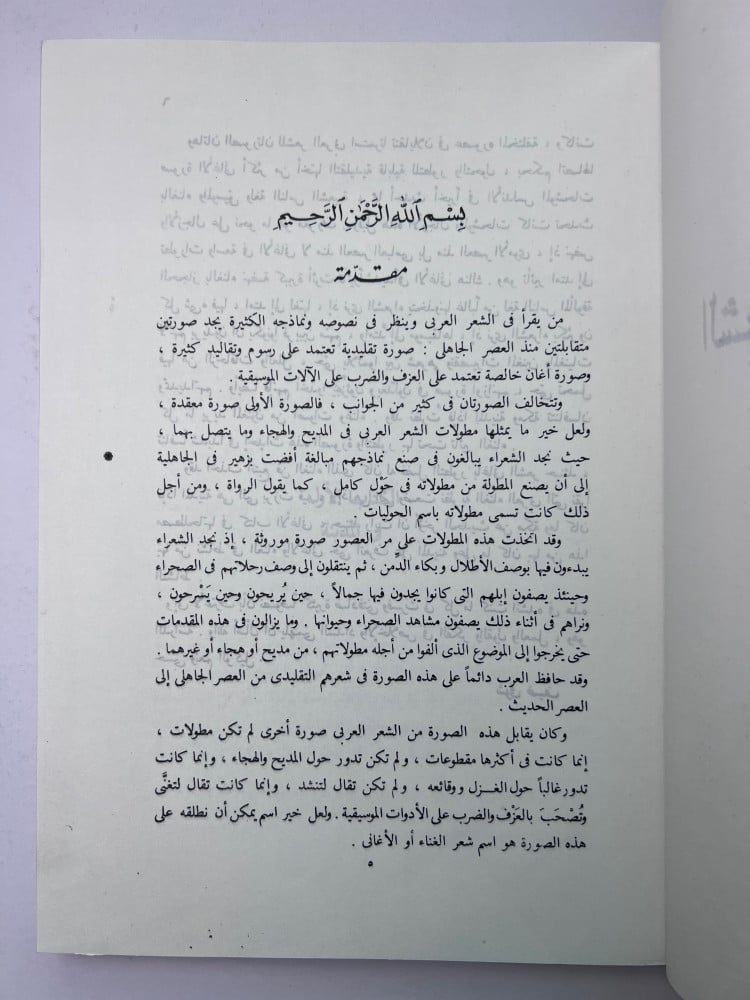 بِسْمِ ٱللَّهِ ٱلرَّحْمَٰنِ ٱلرَّحِيمِ
مقدّمة
من يقرأ فى الشعر العربى وينظر فى نصوصه ونماذجه الكثيرة يجد صورتين
متقابلتين منذ العصر الجاهلى : صورة تقليدية تعتمد على رسوم وتقاليد كثيرة ،
وصورة أغان خالصة تعتمد على العزف والضرب على الآلات الموسيقية .
وتتخالف الصورتان فى كثير من الجوانب ، فالصورة الأولى صورة معقدة ،
ولعل خير ما يمثلها مطولات الشعر العربى فى المديح والهجاء وما يتصل بهما ،
حيث نجد الشعراء يبالغون فى صنع نماذجهم مبالغة أفضت بزهير فى الجاهلية
إلى أن يصنع المطولة من مطولاته فى حَوْل كامل ، كما يقول الرواة ، ومن أجل
ذلك كانت تسمى مطولاته باسم الحوليات .
وقد اتخذت هذه المطولات على مر العصور صورة موروثة ، إذ نجد الشعراء
يبدءون فيها بوصف الأطلال وبكاء الدِّمن ، ثم ينتقلون إلى وصف رحلاتهم فى الصحراء
وحينئذ يصفون إبلهم التى كانوا يجدون فيها جمالاً ، حين يُريحون وحين يَسْرحون ،
ونراهم فى أثناء ذلك يصفون مشاهد الصحراء وحيوانها . وما يزالون فى هذه المقدمات
حتى يخرجوا إلى الموضوع الذى ألفوا من أجله مطولاتهم ، من مديح أو هجاء أو غيرهما .
وقد حافظ العرب دائماً على هذه الصورة فى شعرهم التقليدى من العصر الجاهلى إلى
العصر الحديث .
وكان يقابل هذه الصورة من الشعر العربى صورة أخرى لم تكن مطولات ،
إنما كانت فى أكثرها مقطوعات ، ولم تكن تدور حول المديح والهجاء ، وإنما كانت
تدور غالباً حول الغـــزل ووقائعه ، ولم تكن تقال لتنشد ، وإنما كانت تقال لتغنَّى
وتُصْحَبَ بالعَزْف والضرب على الأدوات الموسيقية . ولعل خير اسم يمكن أن نطلقه على
هذه الصورة هو اسم شعر الغناء أو الأغانى .
٥